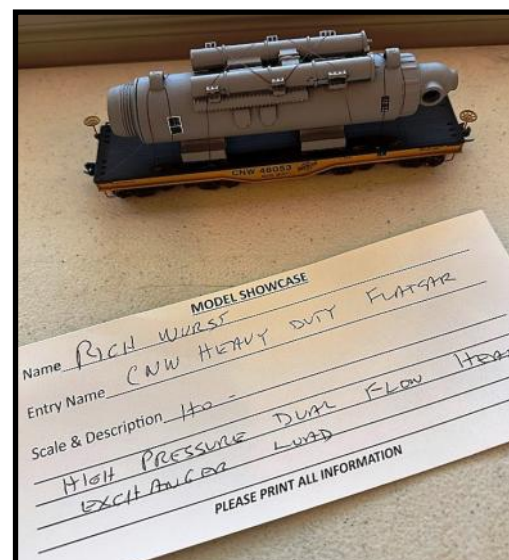 CNW 48053
MODEL SHOWCASE
Name RICH WURST
Entry Name CNW HEAVY DUTY FLATCAR
Scale & Description HO -
HIGH PRESSURE DUAL FLOW HEA
EXCHANGER LOAD
PLEASE PRINT ALL INFORMATION